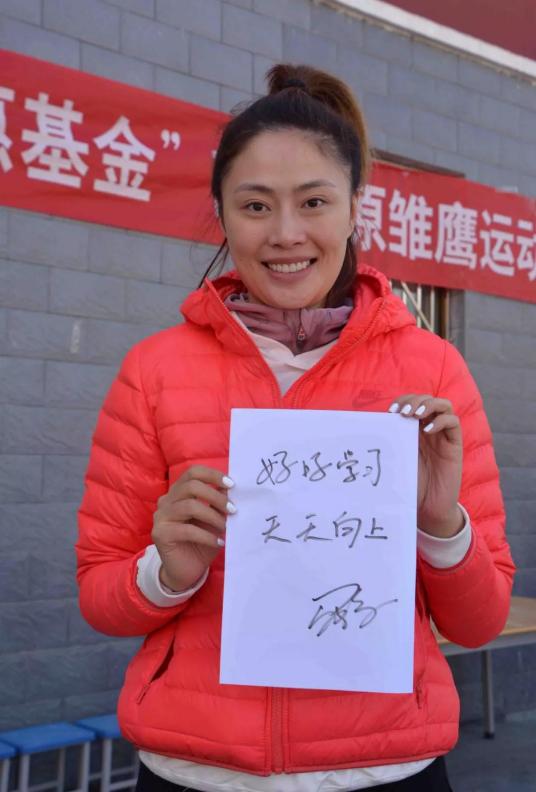 惠基金”
原雏鹰运动
好好学习
天天向上